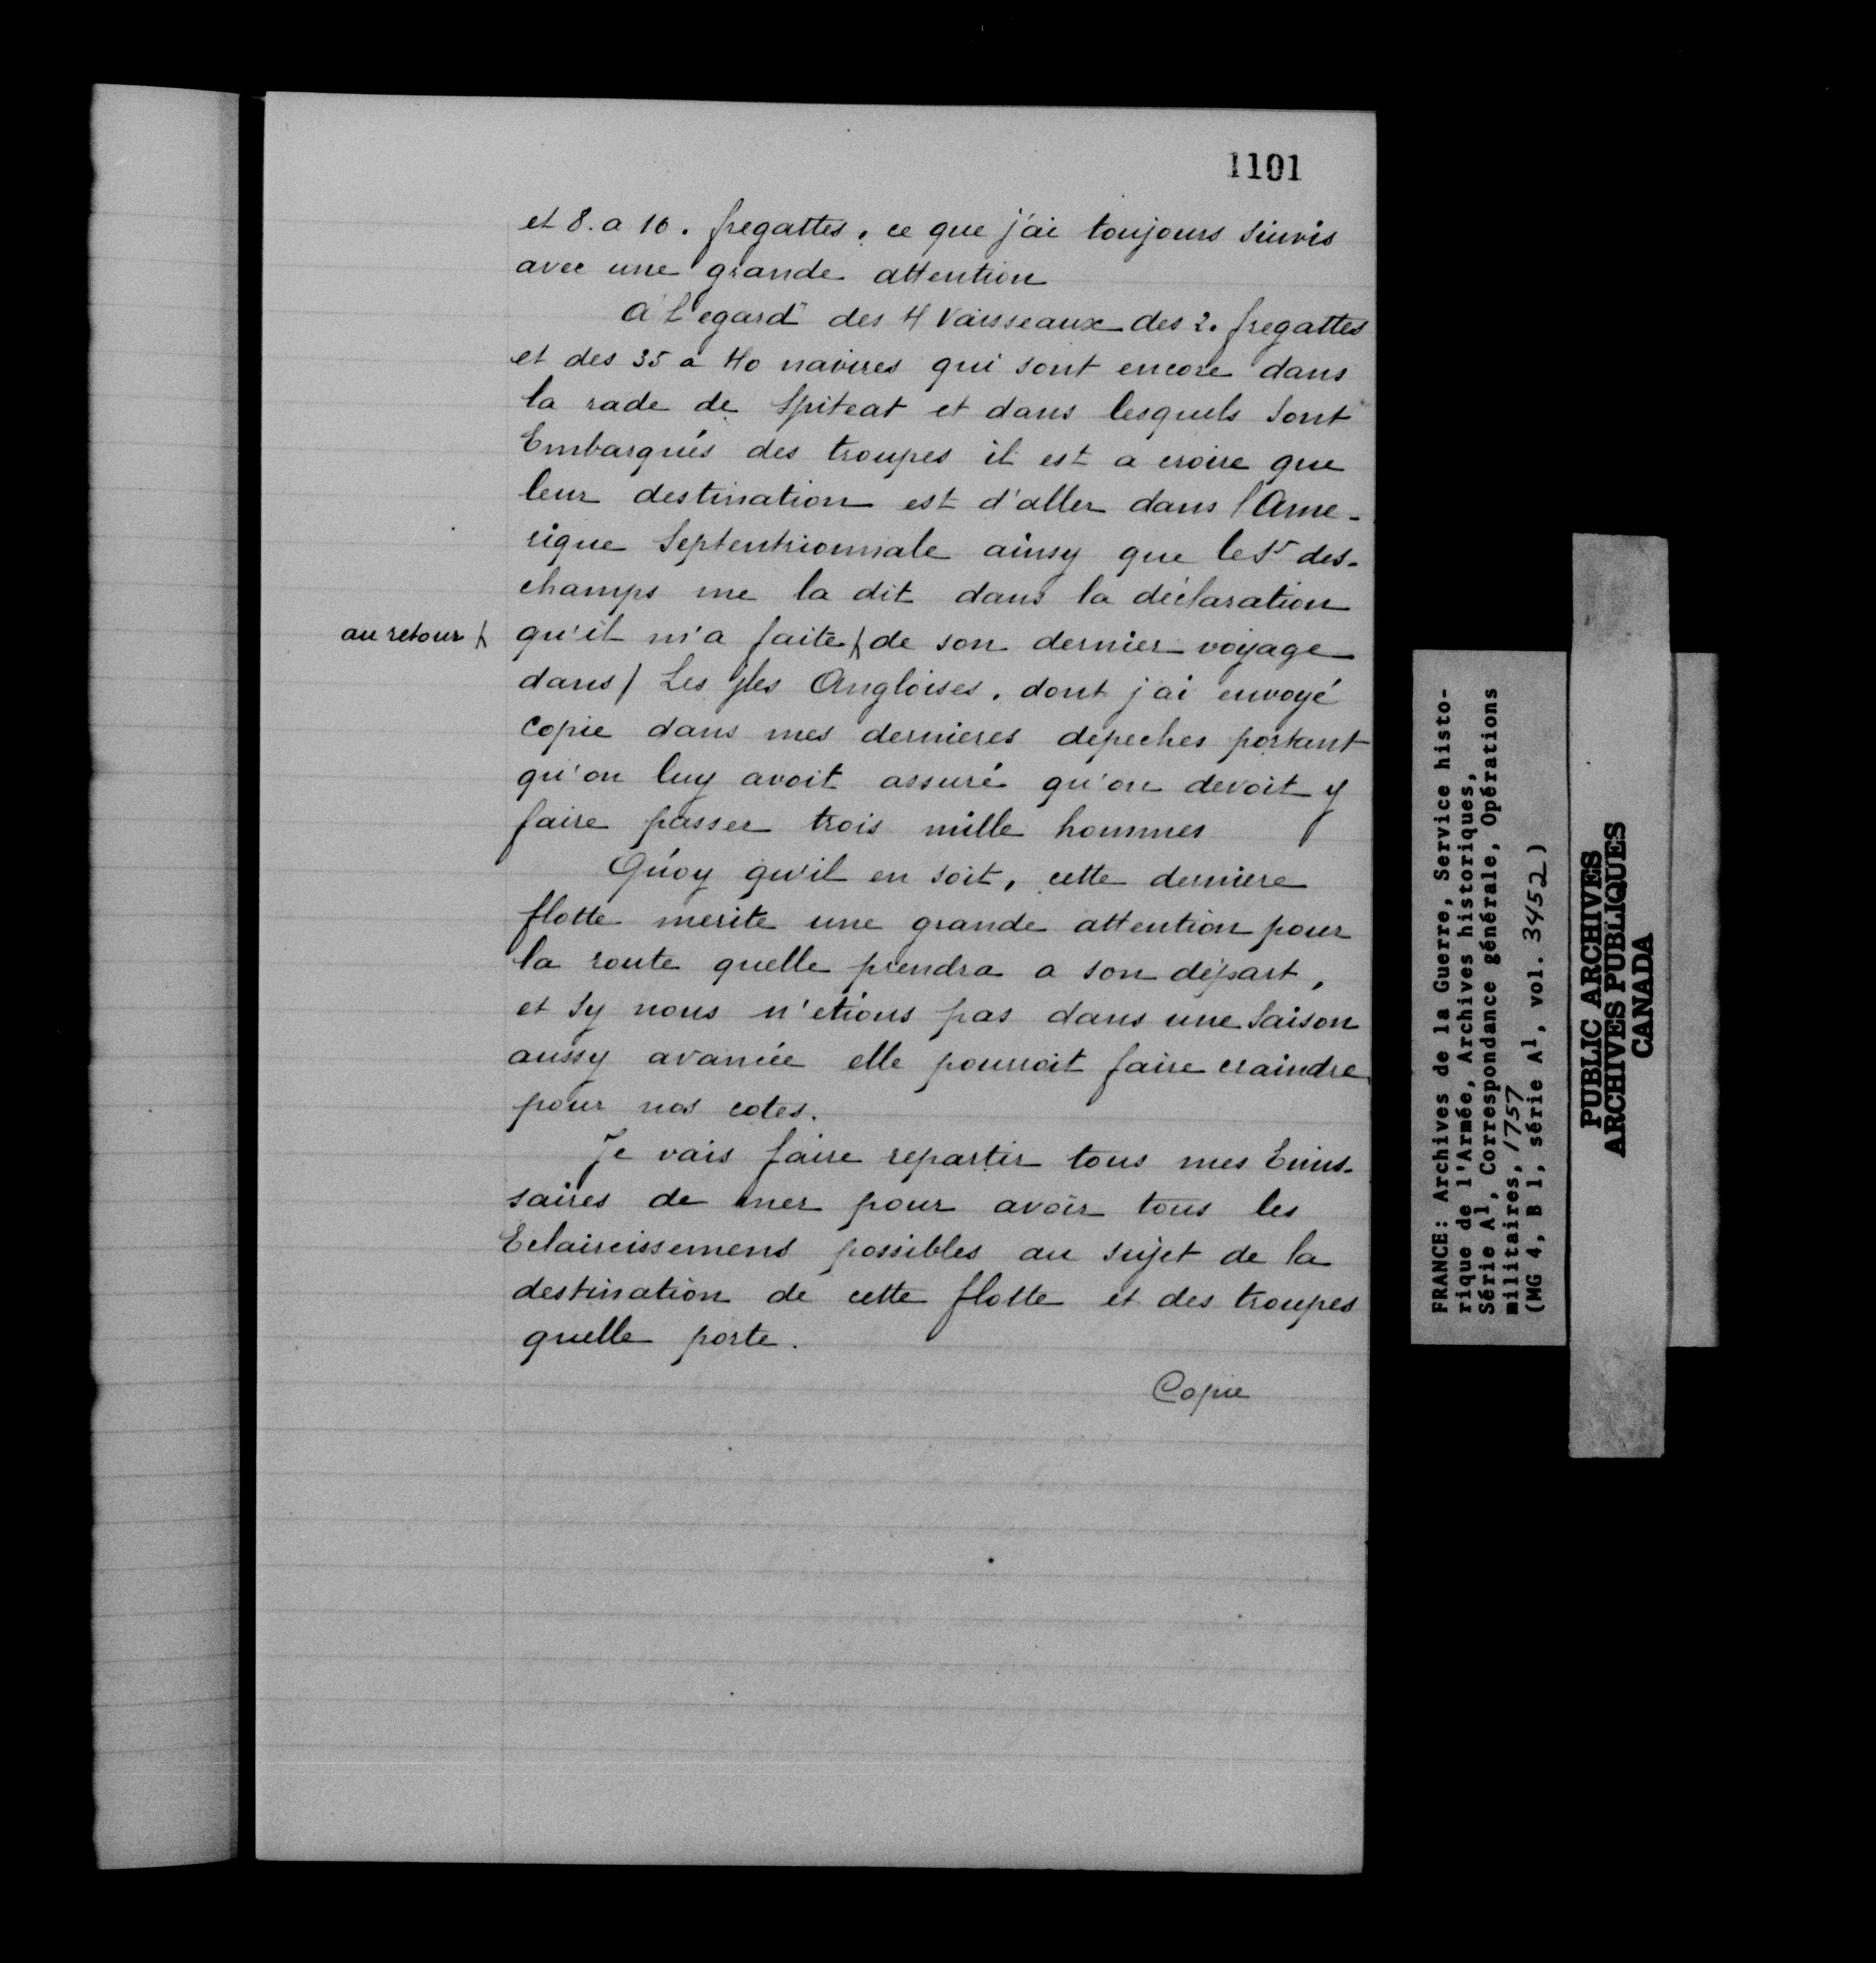 1101
et 8. a 10. fregattes, ce que j'ai toujours suivis
avec une grande attention
A L'egard des 4 Vaisseaux des 2. fregattes
et des 35 a 40 navires qui sont encore dans
la rade de Spiteat et dans lesquels sont
Embarqués des troupes il est a croire que
leur destination est d'aller dans l'Ame-
rique Septentrionnale ainsy que le Sr des-
champs me la dit dans la déclaration
au retour / qu'il m'a faite / de son dernier voyage
dans / Les Jles Angloises. dont j'ai envoyé
Copie dans mes dernieres depeches portant
qu'on luy avoit assuré qu'on devoit y
faire passer trois mille hommes
Quoy qu'il en soit, cette derniere
flotte merite une grande attention pour
la route quelle prendra a son départ,
et sy nous n'etions pas dans une Saison
aussy avancée elle pourroit faire craindre
pour nos cotes.
Je vais faire repartir tous mes Emis-
saires de mer pour avoir tous les
Eclaircissemens possibles au sujet de la
destination de cette flotte et des troupes
quelle porte.
Copie
FRANCE: Archives de la Guerre, Service histo-
rique de l'Armée, Archives historiques,
Série A1, Correspondance générale, Opérations
militaires, 1757
(MG 4, B 1, série A1, vol. 3452)
PUBLIC ARCHIVES
ARCHIVES PUBLIQUES
CANADA